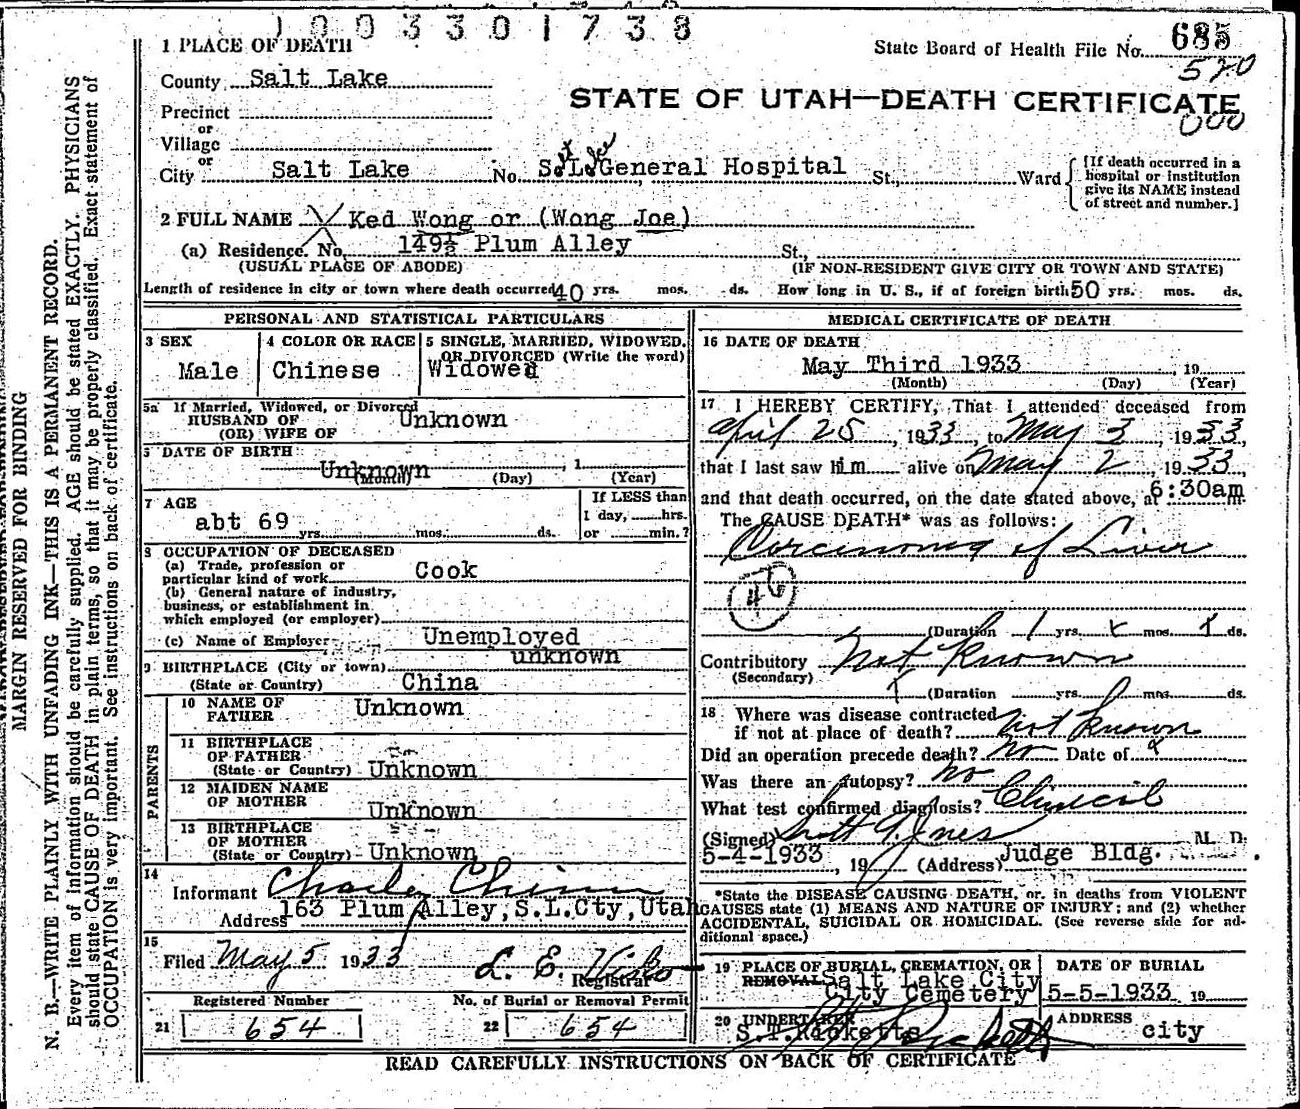 1003301738
1 PLACE OF DEATH
State Board of Health File No. 685
570
County Salt Lake
STATE OF UTAH—DEATH CERTIFICATE
000
Precinct
or
Village
or
City Salt Lake No. S. L. General Hospital St., Ward
[If death occurred in a hospital or institution give its NAME instead of street and number.]
2 FULL NAME Ked Wong or (Wong Joe)
(a) Residence. No. 149½ Plum Alley St.,
(USUAL PLACE OF ABODE) (IF NON-RESIDENT GIVE CITY OR TOWN AND STATE)
Length of residence in city or town where death occurred 40 yrs. mos. ds. How long in U. S., if of foreign birth 50 yrs. mos. ds.
PERSONAL AND STATISTICAL PARTICULARS
3 SEX
Male
4 COLOR OR RACE
Chinese
5 SINGLE, MARRIED, WIDOWED,
OR DIVORCED (Write the word)
Widowed
5a If Married, Widowed, or Divorced
HUSBAND OF
(OR) WIFE OF
Unknown
DATE OF BIRTH
Unknown , 1
(Month) (Day) (Year)
7 AGE
abt 69 yrs. mos. ds.
If LESS than
1 day, hrs.
or min.?
8 OCCUPATION OF DECEASED
(a) Trade, profession or
particular kind of work Cook
(b) General nature of industry,
business, or establishment in
which employed (or employer)
(c) Name of Employer Unemployed
9 BIRTHPLACE (City or town) unknown
(State or Country) China
PARENTS
10 NAME OF
FATHER Unknown
11 BIRTHPLACE
OF FATHER
(State or Country) Unknown
12 MAIDEN NAME
OF MOTHER
Unknown
13 BIRTHPLACE
OF MOTHER
(State or Country) Unknown
14
Informant Charley
Address 163 Plum Alley, S.L.Cty, Utah
15
Filed May 5 1933 L. E.
Registrar
Registered Number
21 654
No. of Burial or Removal Permit
22 654
MEDICAL CERTIFICATE OF DEATH
16 DATE OF DEATH
May Third 1933 , 19
(Month) (Day) (Year)
17 I HEREBY CERTIFY, That I attended deceased from
April 25, 1933, to May 3, 1933,
that I last saw him alive on May 2, 1933
and that death occurred, on the date stated above, at 6:30am
The CAUSE DEATH* was as follows:
Carcinoma of Liver
46
(Duration 1 yrs. x mos. x ds.
Contributory Not Known
(Secondary)
(Duration yrs. mos. ds.
18 Where was disease contracted
if not at place of death? Not Known
Did an operation precede death? No Date of x
Was there an autopsy? No
What test confirmed diagnosis? Clinical
(Signed) Jones M. D.
5-4-1933, 19 (Address) Judge Bldg.
*State the DISEASE CAUSING DEATH, or. in deaths from VIOLENT
CAUSES state (1) MEANS AND NATURE OF INJURY; and (2) whether
ACCIDENTAL, SUICIDAL OR HOMICIDAL. (See reverse side for ad-
ditional space.)
19 PLACE OF BURIAL, CREMATION, OR
REMOVAL Salt Lake City
City Cemetery
DATE OF BURIAL
5-5-1933 19
20 UNDERTAKER
S.T.Ricketts
ADDRESS
city
READ CAREFULLY INSTRUCTIONS ON BACK OF CERTIFICATE
MARGIN RESERVED FOR BINDING
N. B.—WRITE PLAINLY WITH UNFADING INK—THIS IS A PERMANENT RECORD.
Every item of information should be carefully supplied. AGE should be stated EXACTLY. PHYSICIANS
should state CAUSE OF DEATH in plain terms, so that it may be properly classified. Exact statement of
OCCUPATION is very important. See instructions on back of certificate.